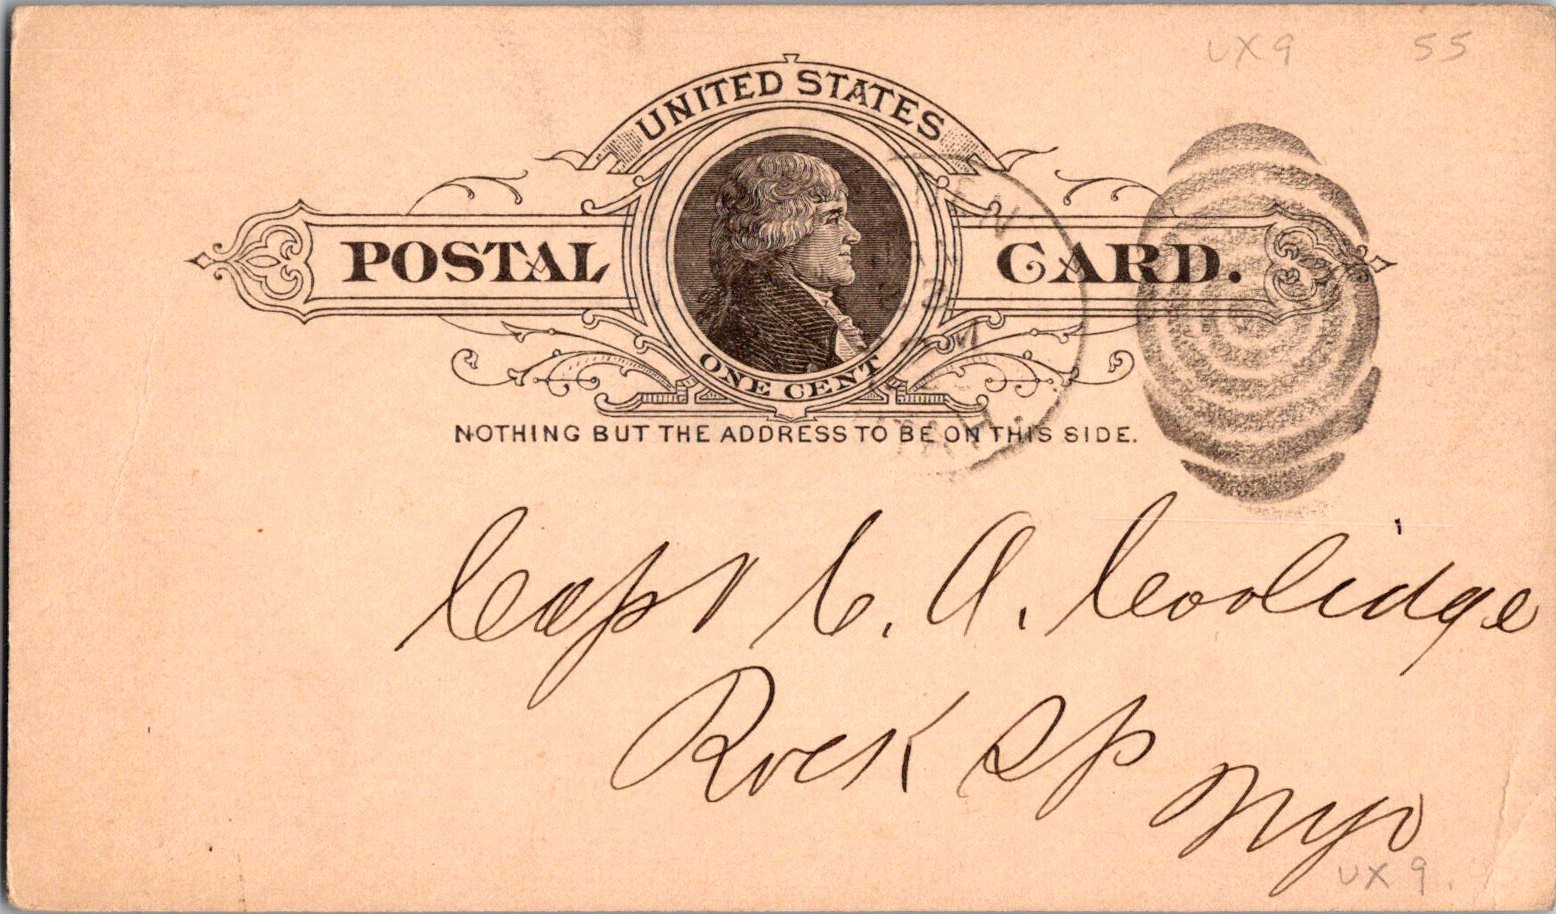 UX9 55
UNITED STATES
POSTAL CARD.
ONE CENT
NOTHING BUT THE ADDRESS TO BE ON THIS SIDE.
Capt C. A. Coolidge
Rock Sp
Wyo
UX9.